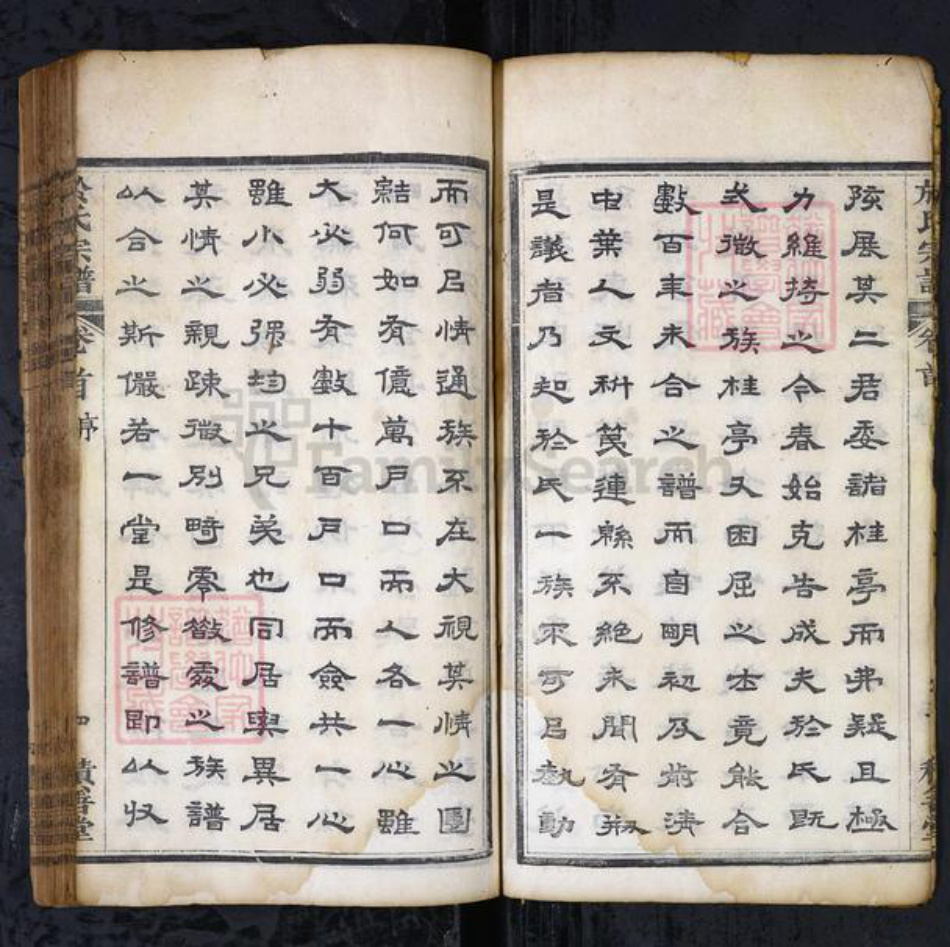 陔展其二君委諸桂亭而弗疑且極
力維持之令春始克告成夫於氏旣
式微之族桂亭又困屈之士竟能合
數百年未合之譜而自明初及前淸
中葉人文科筴連緜不絕未聞有
是議者乃起於氏一族眾可㠯動
而可㠯情通族不在大視其情之團
結何如有億萬戶口而人各一心雖
大必弱有數十百戶口而僉共一心
雖小必强均之兄弟也同居與異居
其情之親疎微別畸零散處之族譜
以合之斯儼若一堂是修譜卽以收
於氏宗譜
卷首
序
四
積善堂
FamilySearch